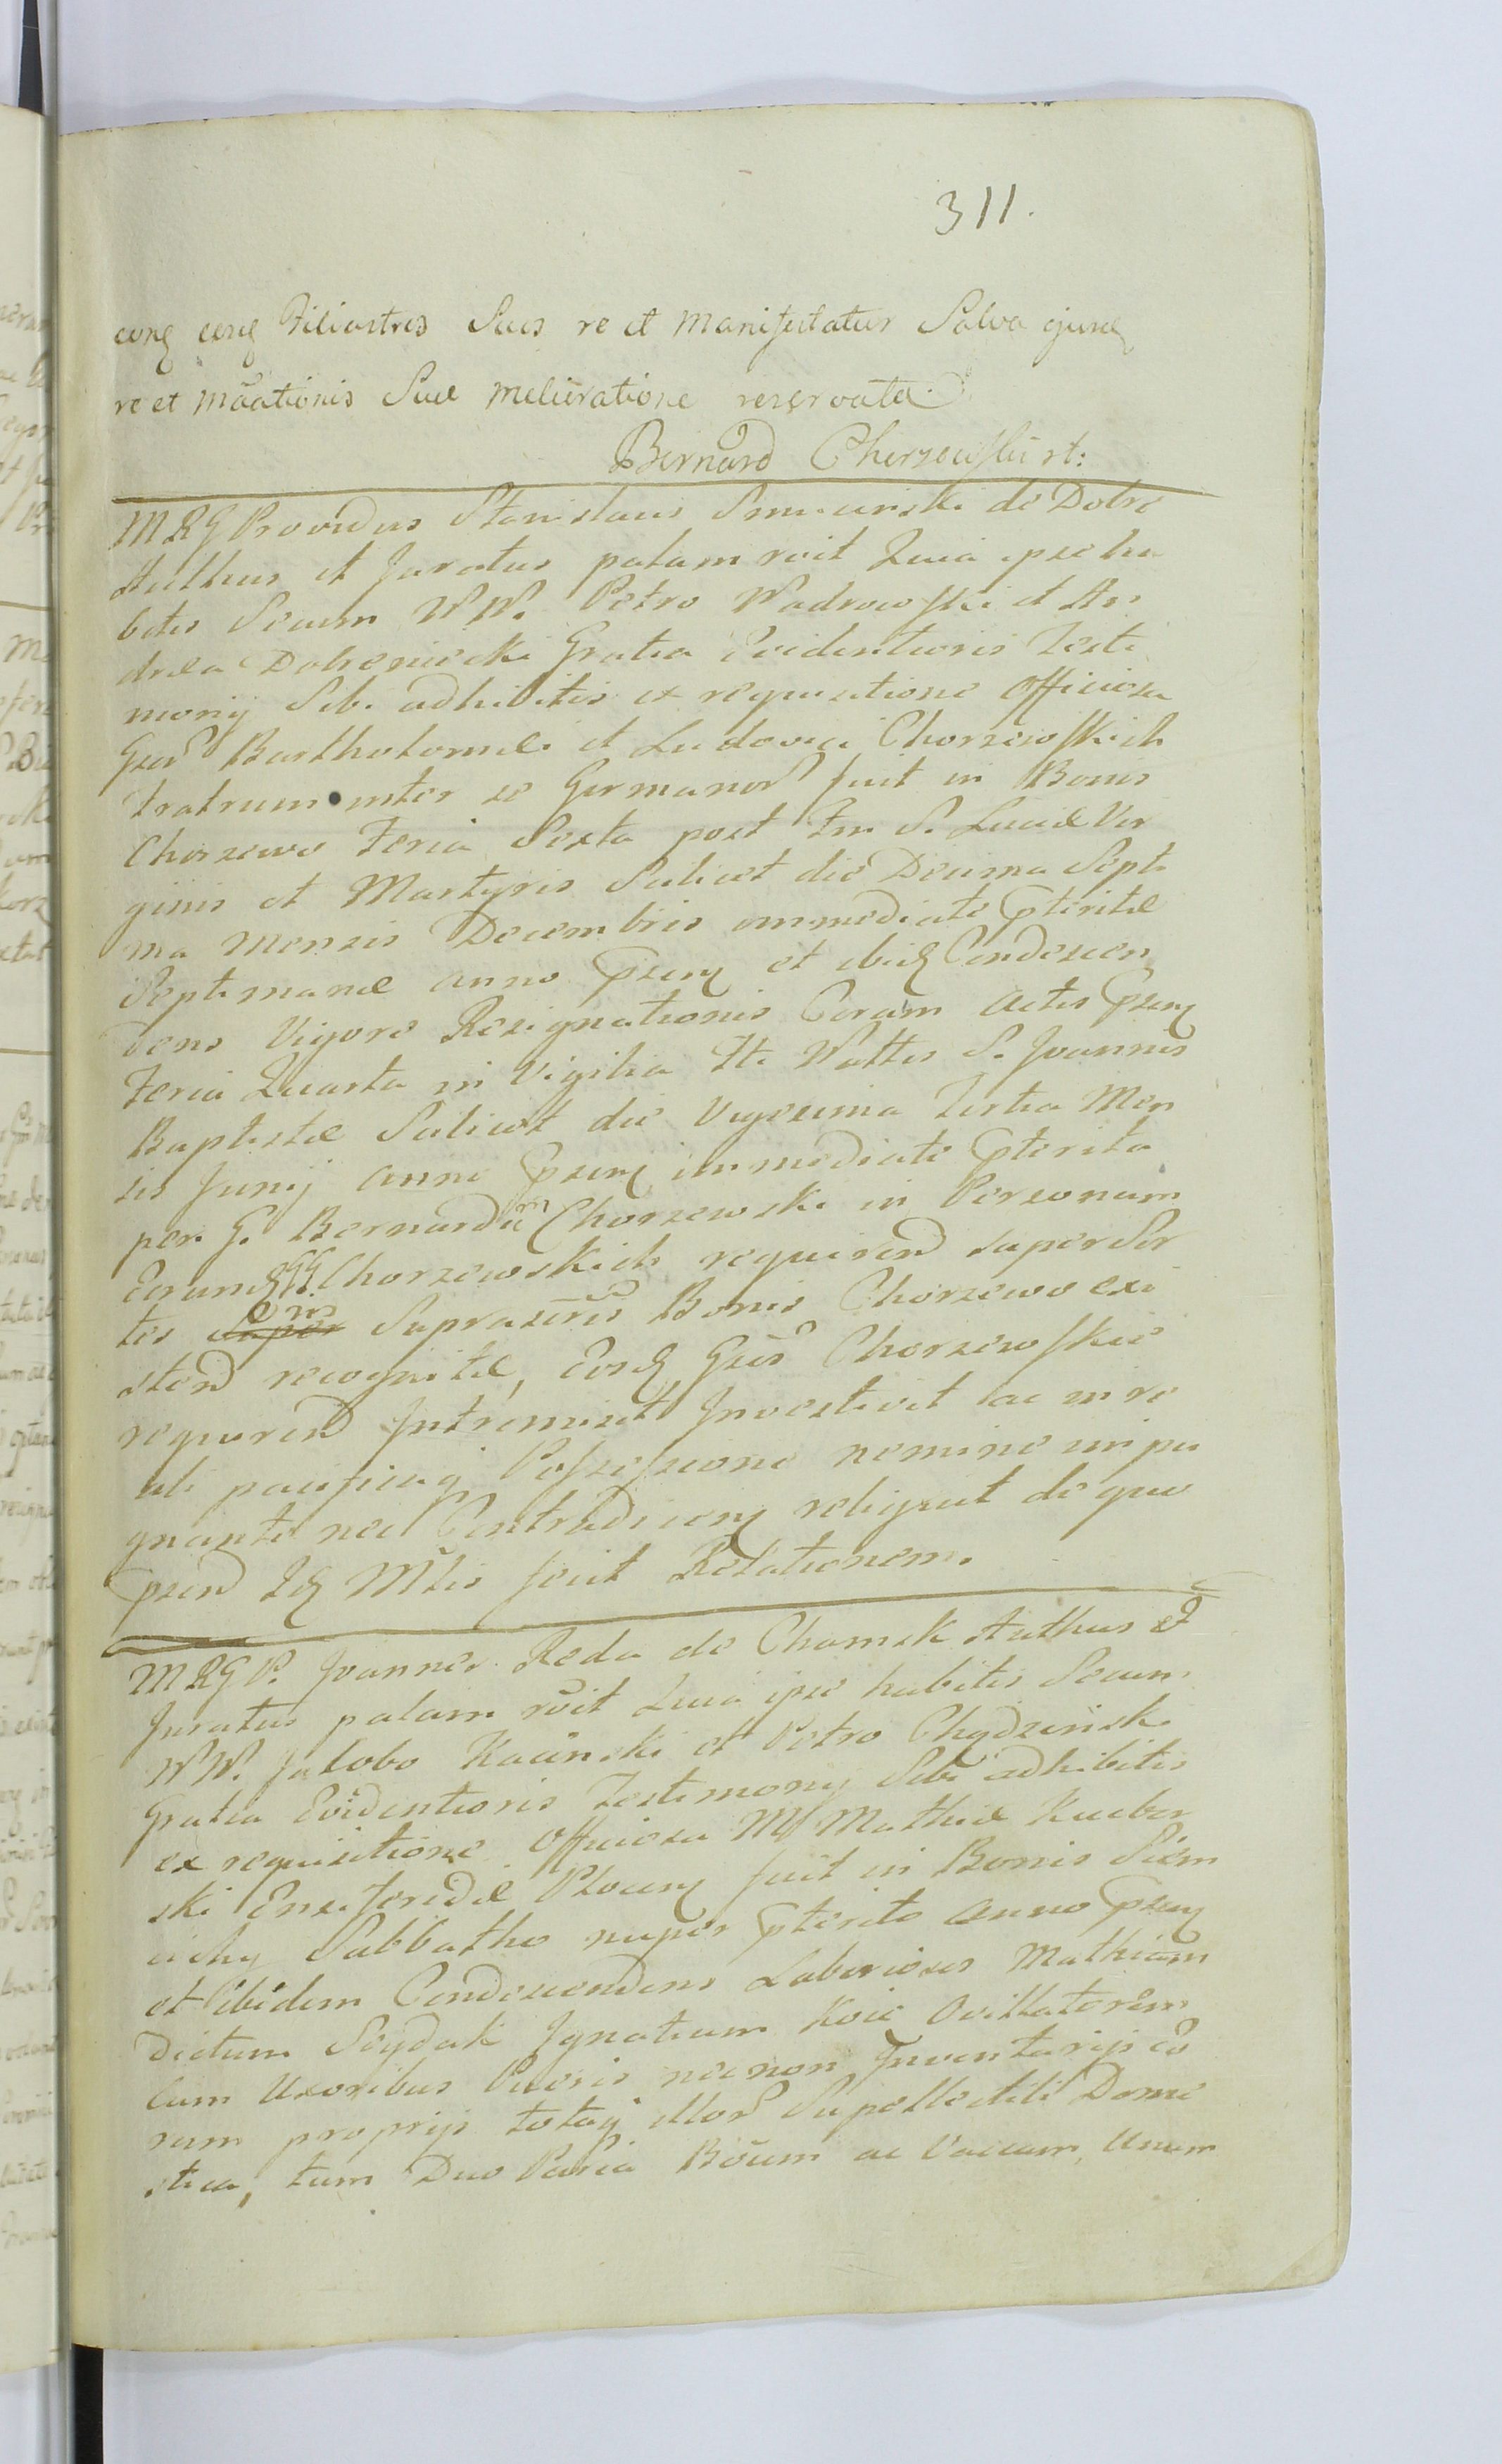 311.
conq eosq Filiastros Suos re et manifestatur Salva ejusq
re et mãationis Suæ melioratione reservata.
Bernard Chorzewski rt:
MRG Providus Stanislaus de Dobre
Authus et Juratus palam roit Quia ipse ha
bitis Secum WW. Petro Wadrowski et An
drea Dobrenieki Gratia Evidentioris Testi
monij Sibi adhibitis ex requisitione Officiosa
Gsor Bartholomæi et Ludovici Chorzewskich
Fratrum inter se Germanor fuit in Bonis
Chorzewo Feria Sexta post Fm S. Luciæ Vir
ginis et Martyris Scilicet die Decima Septi
ma Mensis Decembris immediate pteritæ
Septimanæ anno pseng et ibidq Condescen
dens Vigore Resignationis Coram Actis pseng
Feria Quarta in Vigilia Fti Nattis S. Joannis
Baptistæ Scilicet die Vigesima Tertia Men
sis Junij anni pseng immediate pterita
per G. Bernardũ Chorzewski in Personam
Eorundq GG. Chorzewskich requirend super Sor
tes in Suprascris Bonis Chorzewo exi
stend recognitæ, Eosdq Gsos Chorzewskie
requirend Intromisit Investivit ac in re
ali pacificaq Possessione nemine impu
gnante nec Contradiceng reliquit de quo
psend Idq Mtlis fecit Relationem.
MRG P. Joannes Reda de Chamsk Authus et
Juratus palam rõit Quia ipse habitis Secum
WW. Jacobo Kacinski et Petro Chydzinski
Gratia Evidentioris Testimonij Sibi adhibitis
ex requisitione Officiosa M Mathiæ Kucbor
ski Ensiferidæ Ploceng fuit in Bonis Siem
cichy Sabbatho nuper pterito anno pseng
et ibidem Condescendens Laboriosos Mathiam
dictum Seydak Ignatium Koic Ovillatorem
cum Uxoribus Pueris necnon Inventarijs eo
rum proprijs totaq illor Supellectili Dome
stica, tum Duo Paria Boum ac Vaccam Unam